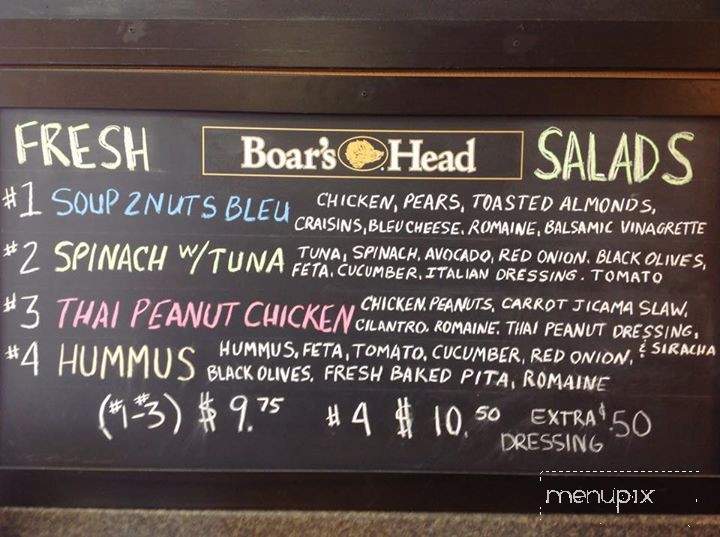 FRESH Boar's Head SALADS
#1 SOUP 2 NUTS BLEU CHICKEN, PEARS, TOASTED ALMONDS,
CRAISINS, BLEU CHEESE. ROMAINE, BALSAMIC VINAGRETTE
#2 SPINACH W/TUNA TUNA, SPINACH, AVOCADO, RED ONION. BLACK OLIVES,
FETA, CUCUMBER, ITALIAN DRESSING. TOMATO
#3 THAI PEANUT CHICKEN CHICKEN, PEANUTS, CARROT JICAMA SLAW,
CILANTRO. ROMAINE. THAI PEANUT DRESSING,
& SIRACHA
#4 HUMMUS HUMMUS, FETA, TOMATO, CUCUMBER, RED ONION,
BLACK OLIVES. FRESH BAKED PITA, ROMAINE
(#1-#3) $9.75 #4 $10.50 EXTRA $.50
DRESSING
menupix